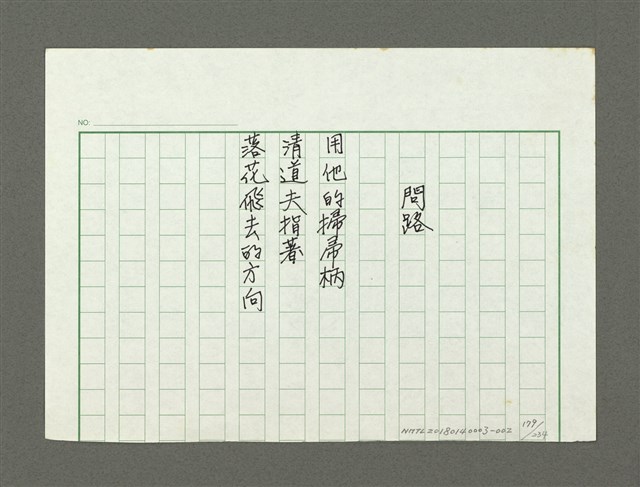 NO:
問路
用他的掃帚柄
清道夫指著
落花飛去的方向
NMTL20180140003-002
179/204